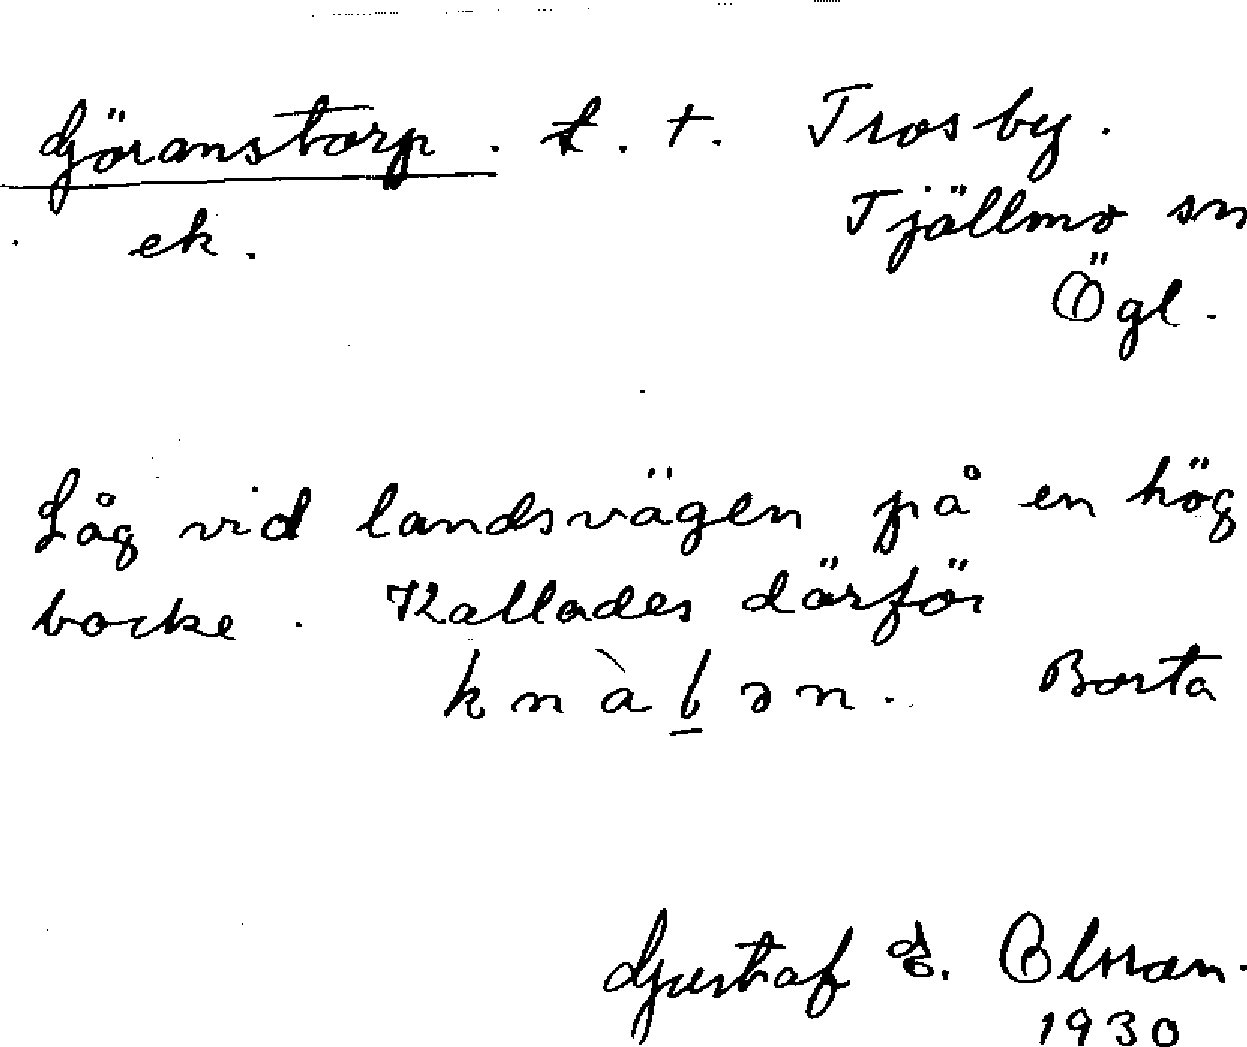 Göranstorp. t. t. Trosby.
ek. Tjällmo sn
Ögl.
Låg vid landsvägen på en hög
backe. Kallades därför
knàḇən. Borta
Gustaf E. Olsson.
1930